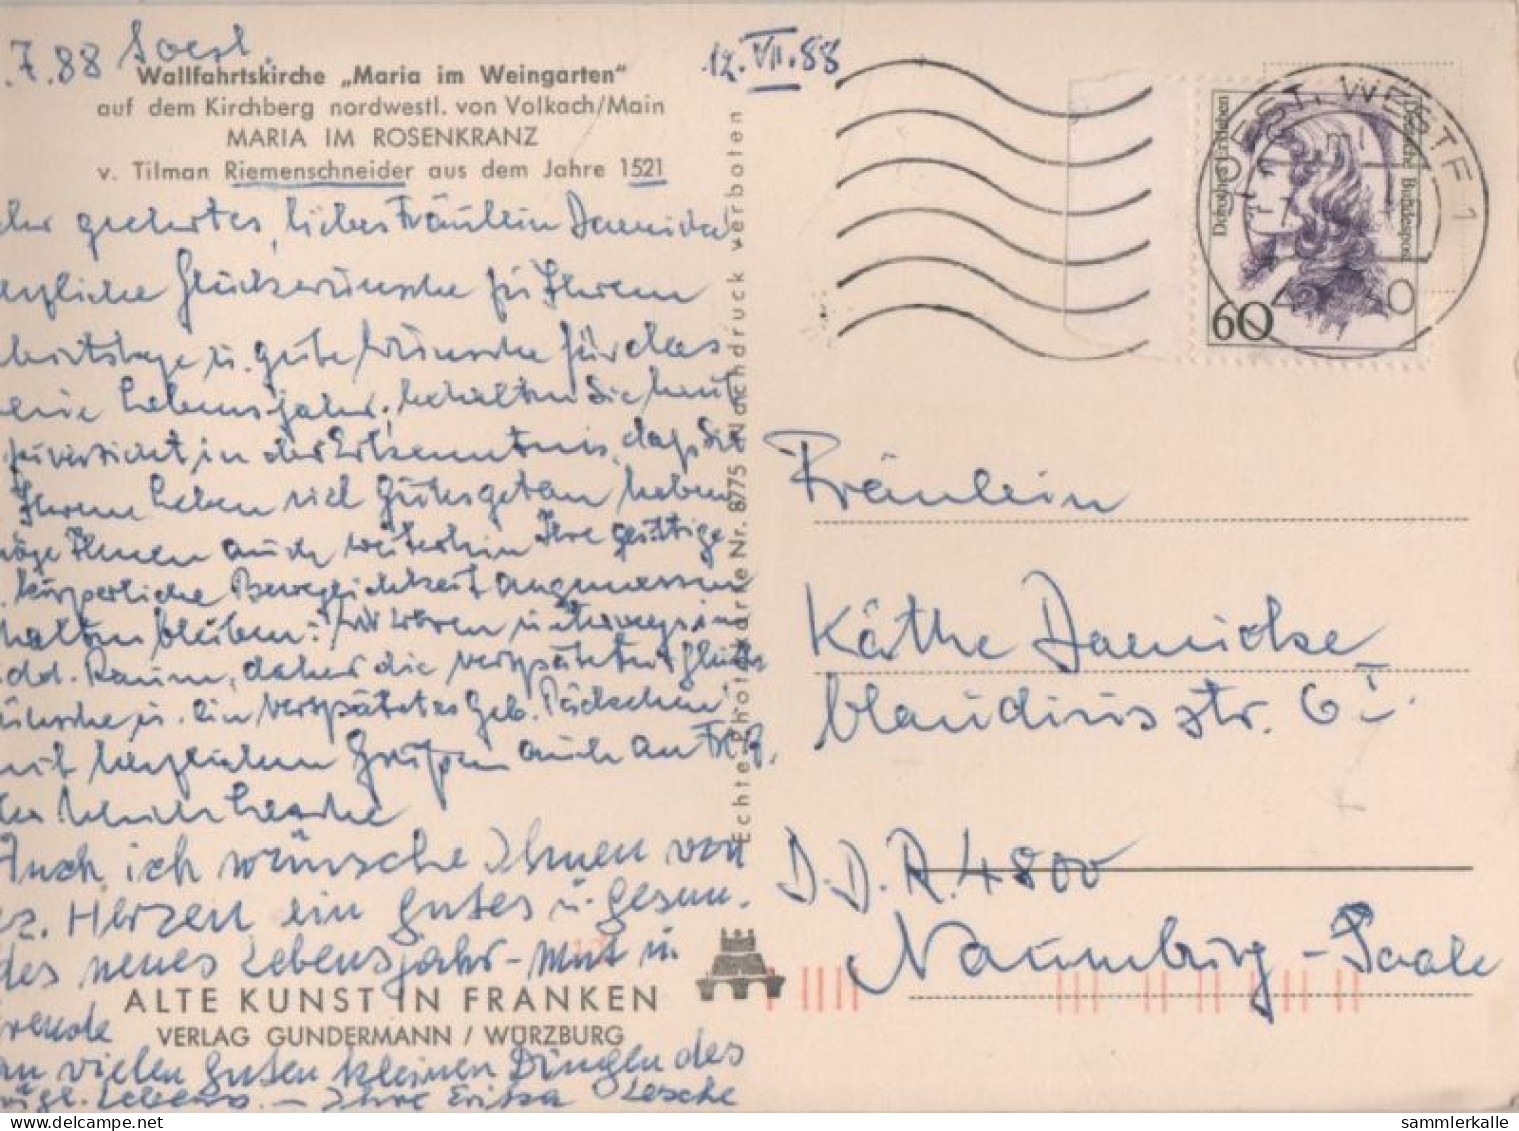 .7.88 Soest.
12.VII.88
Wallfahrtskirche „Maria im Weingarten"
auf dem Kirchberg nordwestl. von Volkach/Main
MARIA IM ROSENKRANZ
v. Tilman Riemenschneider aus dem Jahre 1521
geehrtes, liebes Fräulein Daenicke
Glückwünsche zu Ihrem
u. gute Wünsche für das
Lebensjahr, behalten Sie
in der Erkenntnis, daß Sie
Ihrem Leben viel Gutes getan haben
Ihnen auch weiterhin Ihre geistige
körperliche Beweglichkeit angemessen
bleiben. Wir waren unterwegs im
dd. Raum, daher die verspäteten
u. ein verspätetes Geb. Päckchen
mit herzlichen Grüßen auch an
Auch ich wünsche Ihnen von
Herzen ein gutes u. gesun.
des neues Lebensjahr - Mut u.
ALTE KUNST IN FRANKEN
Freude
VERLAG GUNDERMANN / WÜRZBURG
an vielen guten kleinen Dingen des
tägl. Lebens. - Ihre Erika Lesche
Echte Photokarte Nr. 8775 Nachdruck verboten
SOEST, WESTF 1
4770
Dorothea Erxleben
Deutsche Bundespost
60
Fräulein
Käthe Daenicke
Claudiusstr. 6 I
D.D.R. 4800
Naumburg-Saale
sammlerkalle